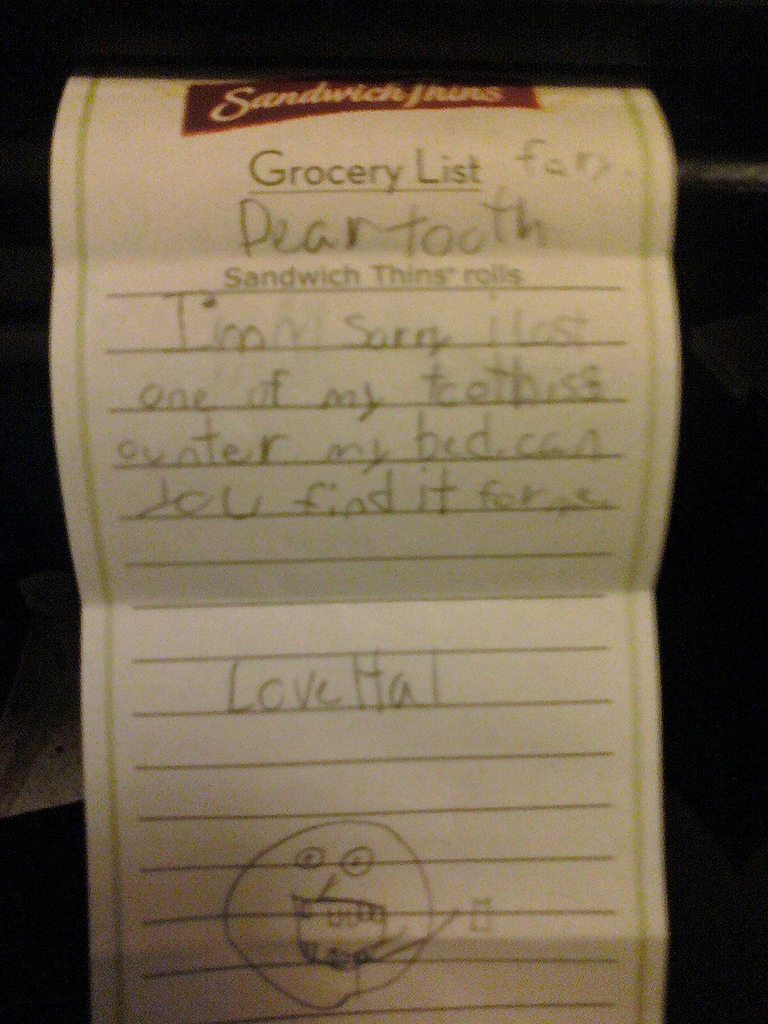 Sandwich Thins
Grocery List fary.
Dear tooth
Sandwich Thins® rolls
I'm sarry i lost
one of my toothiss
ounter my bed. can
you find it for me
Love Hal